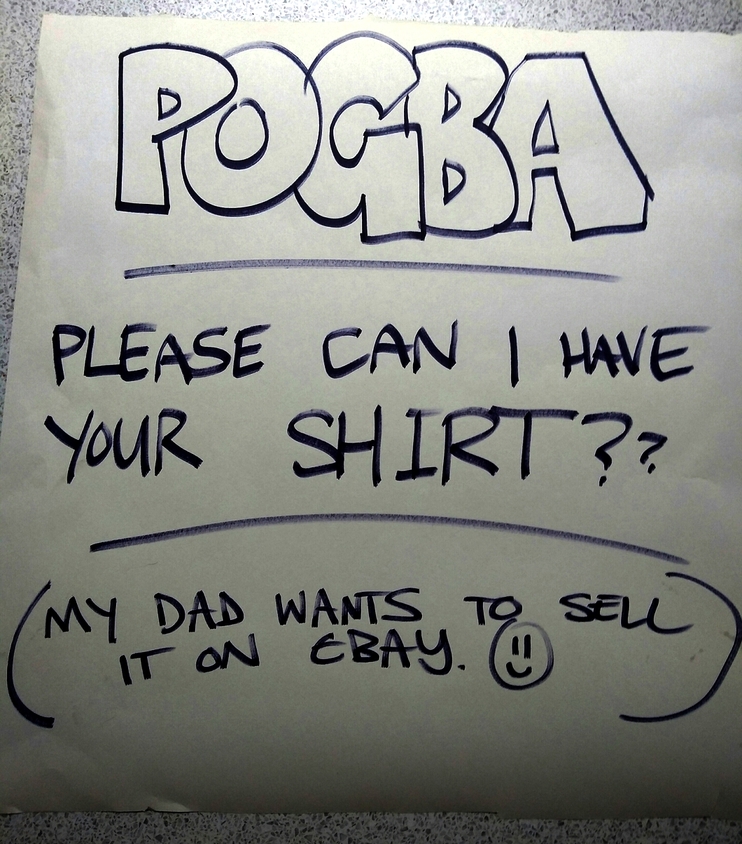 POGBA
PLEASE CAN I HAVE
YOUR SHIRT??
(MY DAD WANTS TO SELL
IT ON EBAY. )